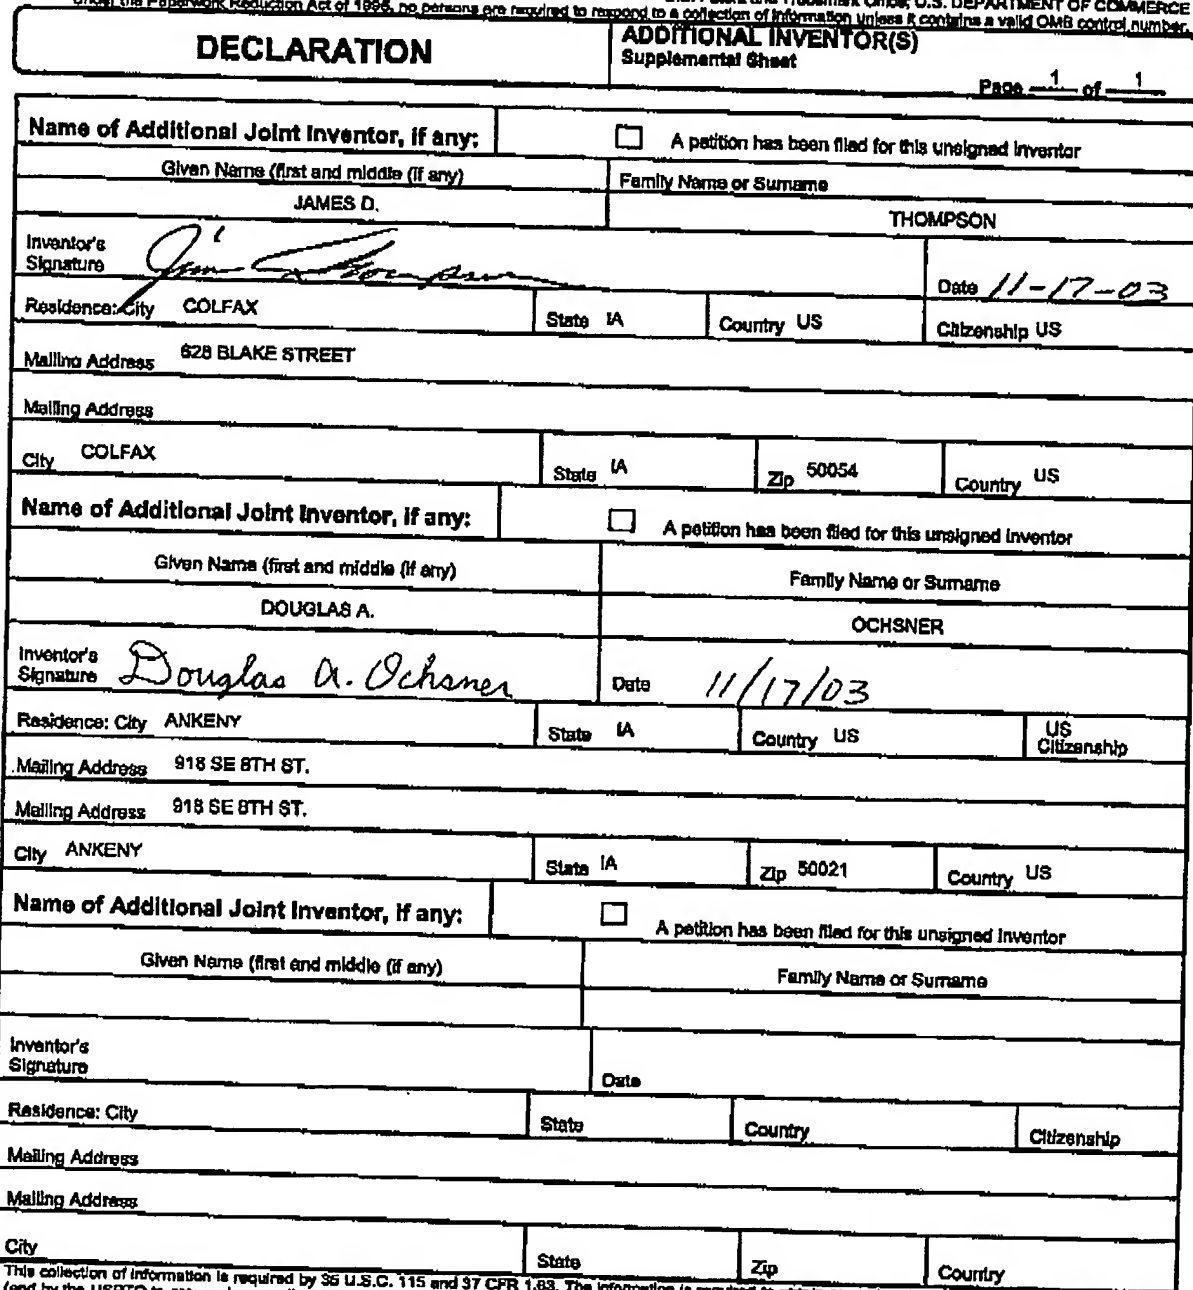 Under the Paperwork Reduction Act of 1995, no persons are required to respond to a collection of information unless it contains a valid OMB control number.
U.S. DEPARTMENT OF COMMERCE
DECLARATION
ADDITIONAL INVENTOR(S)
Supplemental Sheet
Page 1 of 1
Name of Additional Joint Inventor, if any:
A petition has been filed for this unsigned inventor
Given Name (first and middle (if any)
Family Name or Surname
JAMES D.
THOMPSON
Inventor's
Signature
Jim Thompson
Date 11-17-03
Residence: City COLFAX
State IA
Country US
Citizenship US
Mailing Address 628 BLAKE STREET
Mailing Address
City COLFAX
State IA
Zip 50054
Country US
Name of Additional Joint Inventor, if any:
A petition has been filed for this unsigned inventor
Given Name (first and middle (if any)
Family Name or Surname
DOUGLAS A.
OCHSNER
Inventor's
Signature
Douglas A. Ochsner
Date 11/17/03
Residence: City ANKENY
State IA
Country US
US
Citizenship
Mailing Address 918 SE 8TH ST.
Mailing Address 918 SE 8TH ST.
City ANKENY
State IA
Zip 50021
Country US
Name of Additional Joint Inventor, if any:
A petition has been filed for this unsigned inventor
Given Name (first and middle (if any)
Family Name or Surname
Inventor's
Signature
Date
Residence: City
State
Country
Citizenship
Mailing Address
Mailing Address
City
State
Zip
Country
This collection of information is required by 35 U.S.C. 115 and 37 CFR 1.63. The information is required